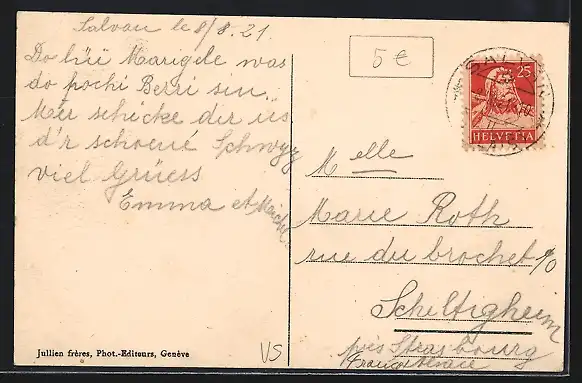 Salvan le 8/8.21.
Do hüi Marigele was
do pochi Berri sin.
Mer schicke dir us
d'r schoene Schwyz
viel Grüess
Emma et
5 €
SALVAN
25
HELVETIA
Melle
Marie Roth
rue du brochet %
Schiltigheim
près Strasbourg
France Alsace
Jullien frères, Phot.-Editeurs, Genève
VS